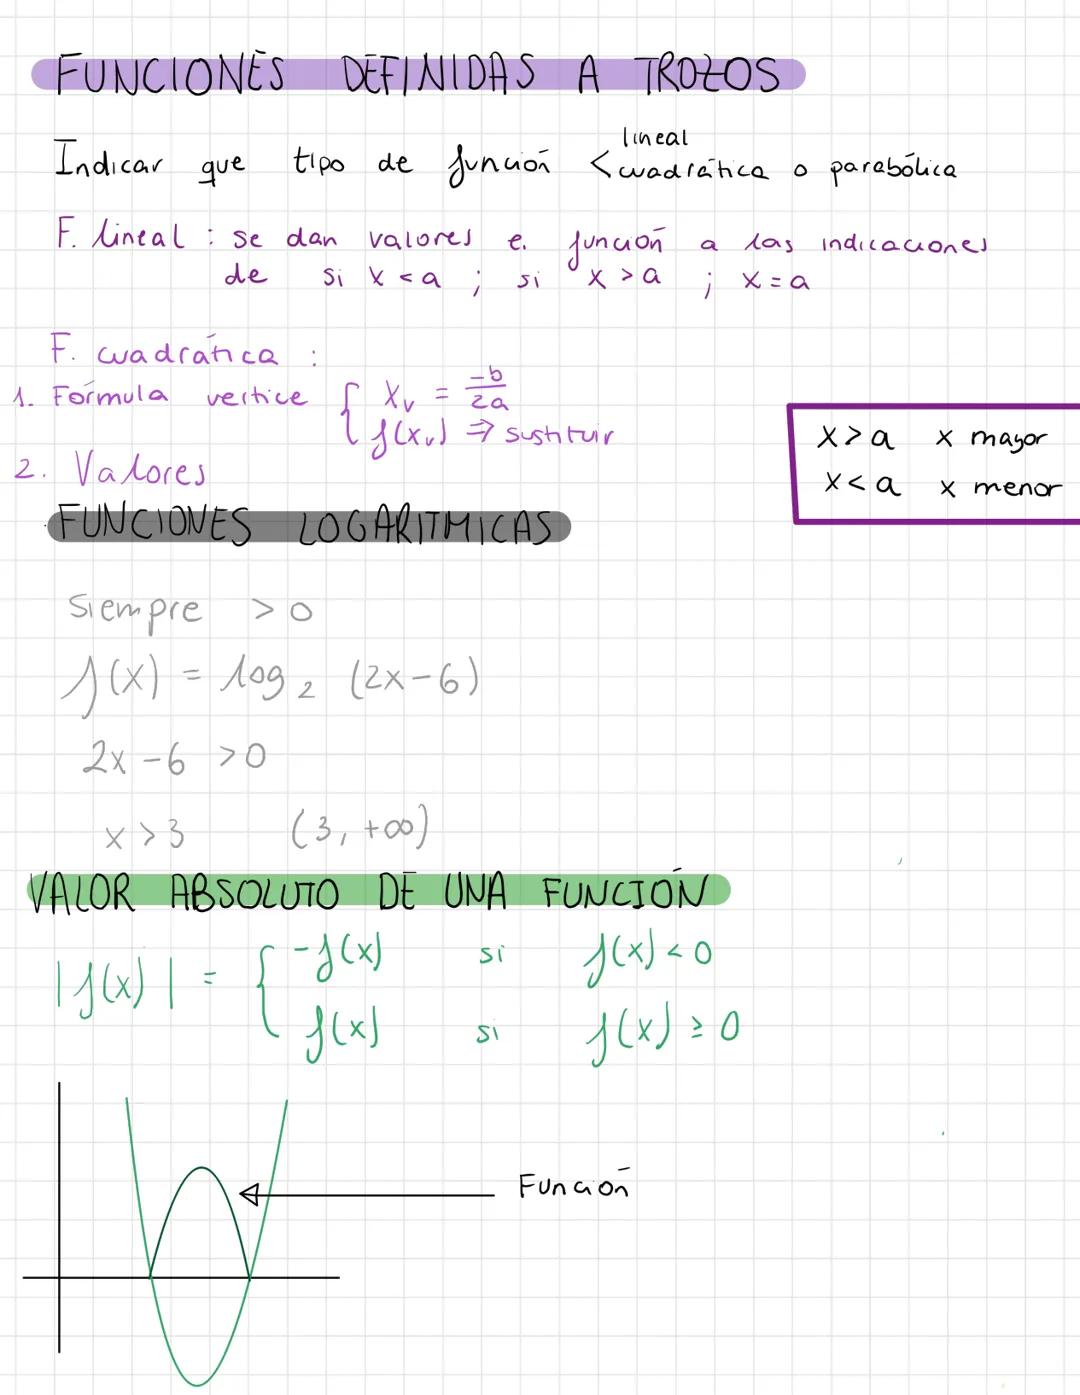 FUNCIONES DEFINIDAS A TROZOS
lineal
Indicar que tipo de función < cuadrática o parabólica
F. lineal : se dan valores e. función a las indicaciones
de si x < a ; si x > a ; x = a
F. cuadrática :
1. Fórmula vertice { Xv = -b/2a
f(xv) ⇒ sustituir
x > a x mayor
x < a x menor
2. Valores
FUNCIONES LOGARITMICAS
Siempre > 0
f(x) = log₂ (2x-6)
2x - 6 > 0
x > 3 (3, +∞)
VALOR ABSOLUTO DE UNA FUNCIÓN
|f(x)| = { -f(x) si f(x) < 0
f(x) si f(x) ≥ 0
Función